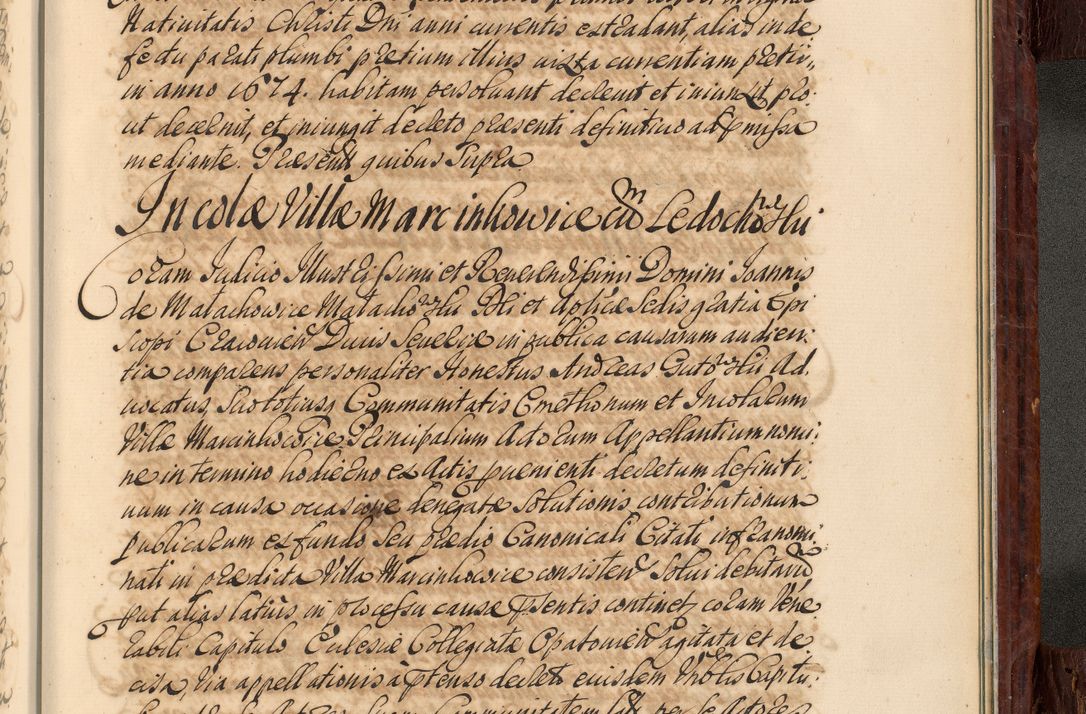 Nativitatis Christi Dni anni currentis extradant, alias in de
fectu parati plumbi pretium illius iuxta currentiam pretii,
in anno 1674. habitam persolvant decrevit et iniunxit pro
ut decernit, et iniungit decreto præsenti definitivo ad pmissa
mediante. Præsentt quibus Supra
Incolæ Villæ Marcinkowice cum Ledochowski
Coram Iudicio Illustrissimi et Reverendissimi Domini Joannis
de Malachowice Malachowski Dei et Aplicæ Sedis gratia Epi
scopi Cracovien Ducis Severiæ in publica causarum audien
tia comparens personaliter Honestus Andreas Gutowski Ad
vocatus, suo totiusq Communitatis Cmethonum et Incolarum
Villæ Marcinkowice Principalium Actorum Appellantium nomi
ne in termino hodierno ex Actis pvenienti decretum definiti
vum in causa occasione denegatæ Solutionis contributionum
publicarum ex fundo seu prædio Canonicali Citati infranomi
nati in prædicta Villa Marcinkowice consisten Solvi debitarum
put alias latius in processu causæ pñsentis continet, coram Vene
rabili Capitulo Ecclesiæ Collegiatæ Opatovien agitata et de
cisa, via appellationis à ptenso decreto eiusdem Vnblis Capitu